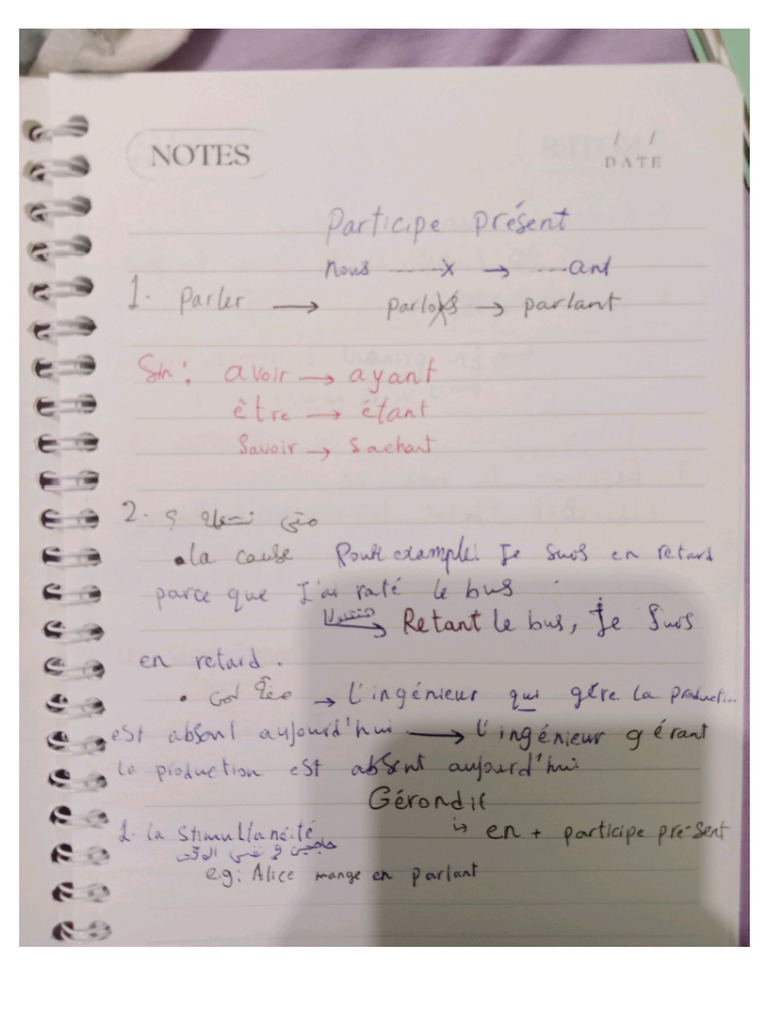 NOTES
/ /
DATE
Participe présent
nous ......x → ....ant
1. Parler → parlons → parlant
Sin: avoir → ayant
être → étant
Savoir → Sachant
2. متى نستعمله ؟
• la cause Pour example: Je suis en retard
parce que J'ai raté le bus
→ Retant le bus, Je suis
en retard.
• → L'ingénieur qui gére la production..
est absent aujourd'hui → l'ingénieur gérant
la production est absent aujourd'hui
Gérondif
↳ en + participe présent
1. la Stimultanéité
حاجتين في نفس الوقت
e.g: Alice mange en parlant